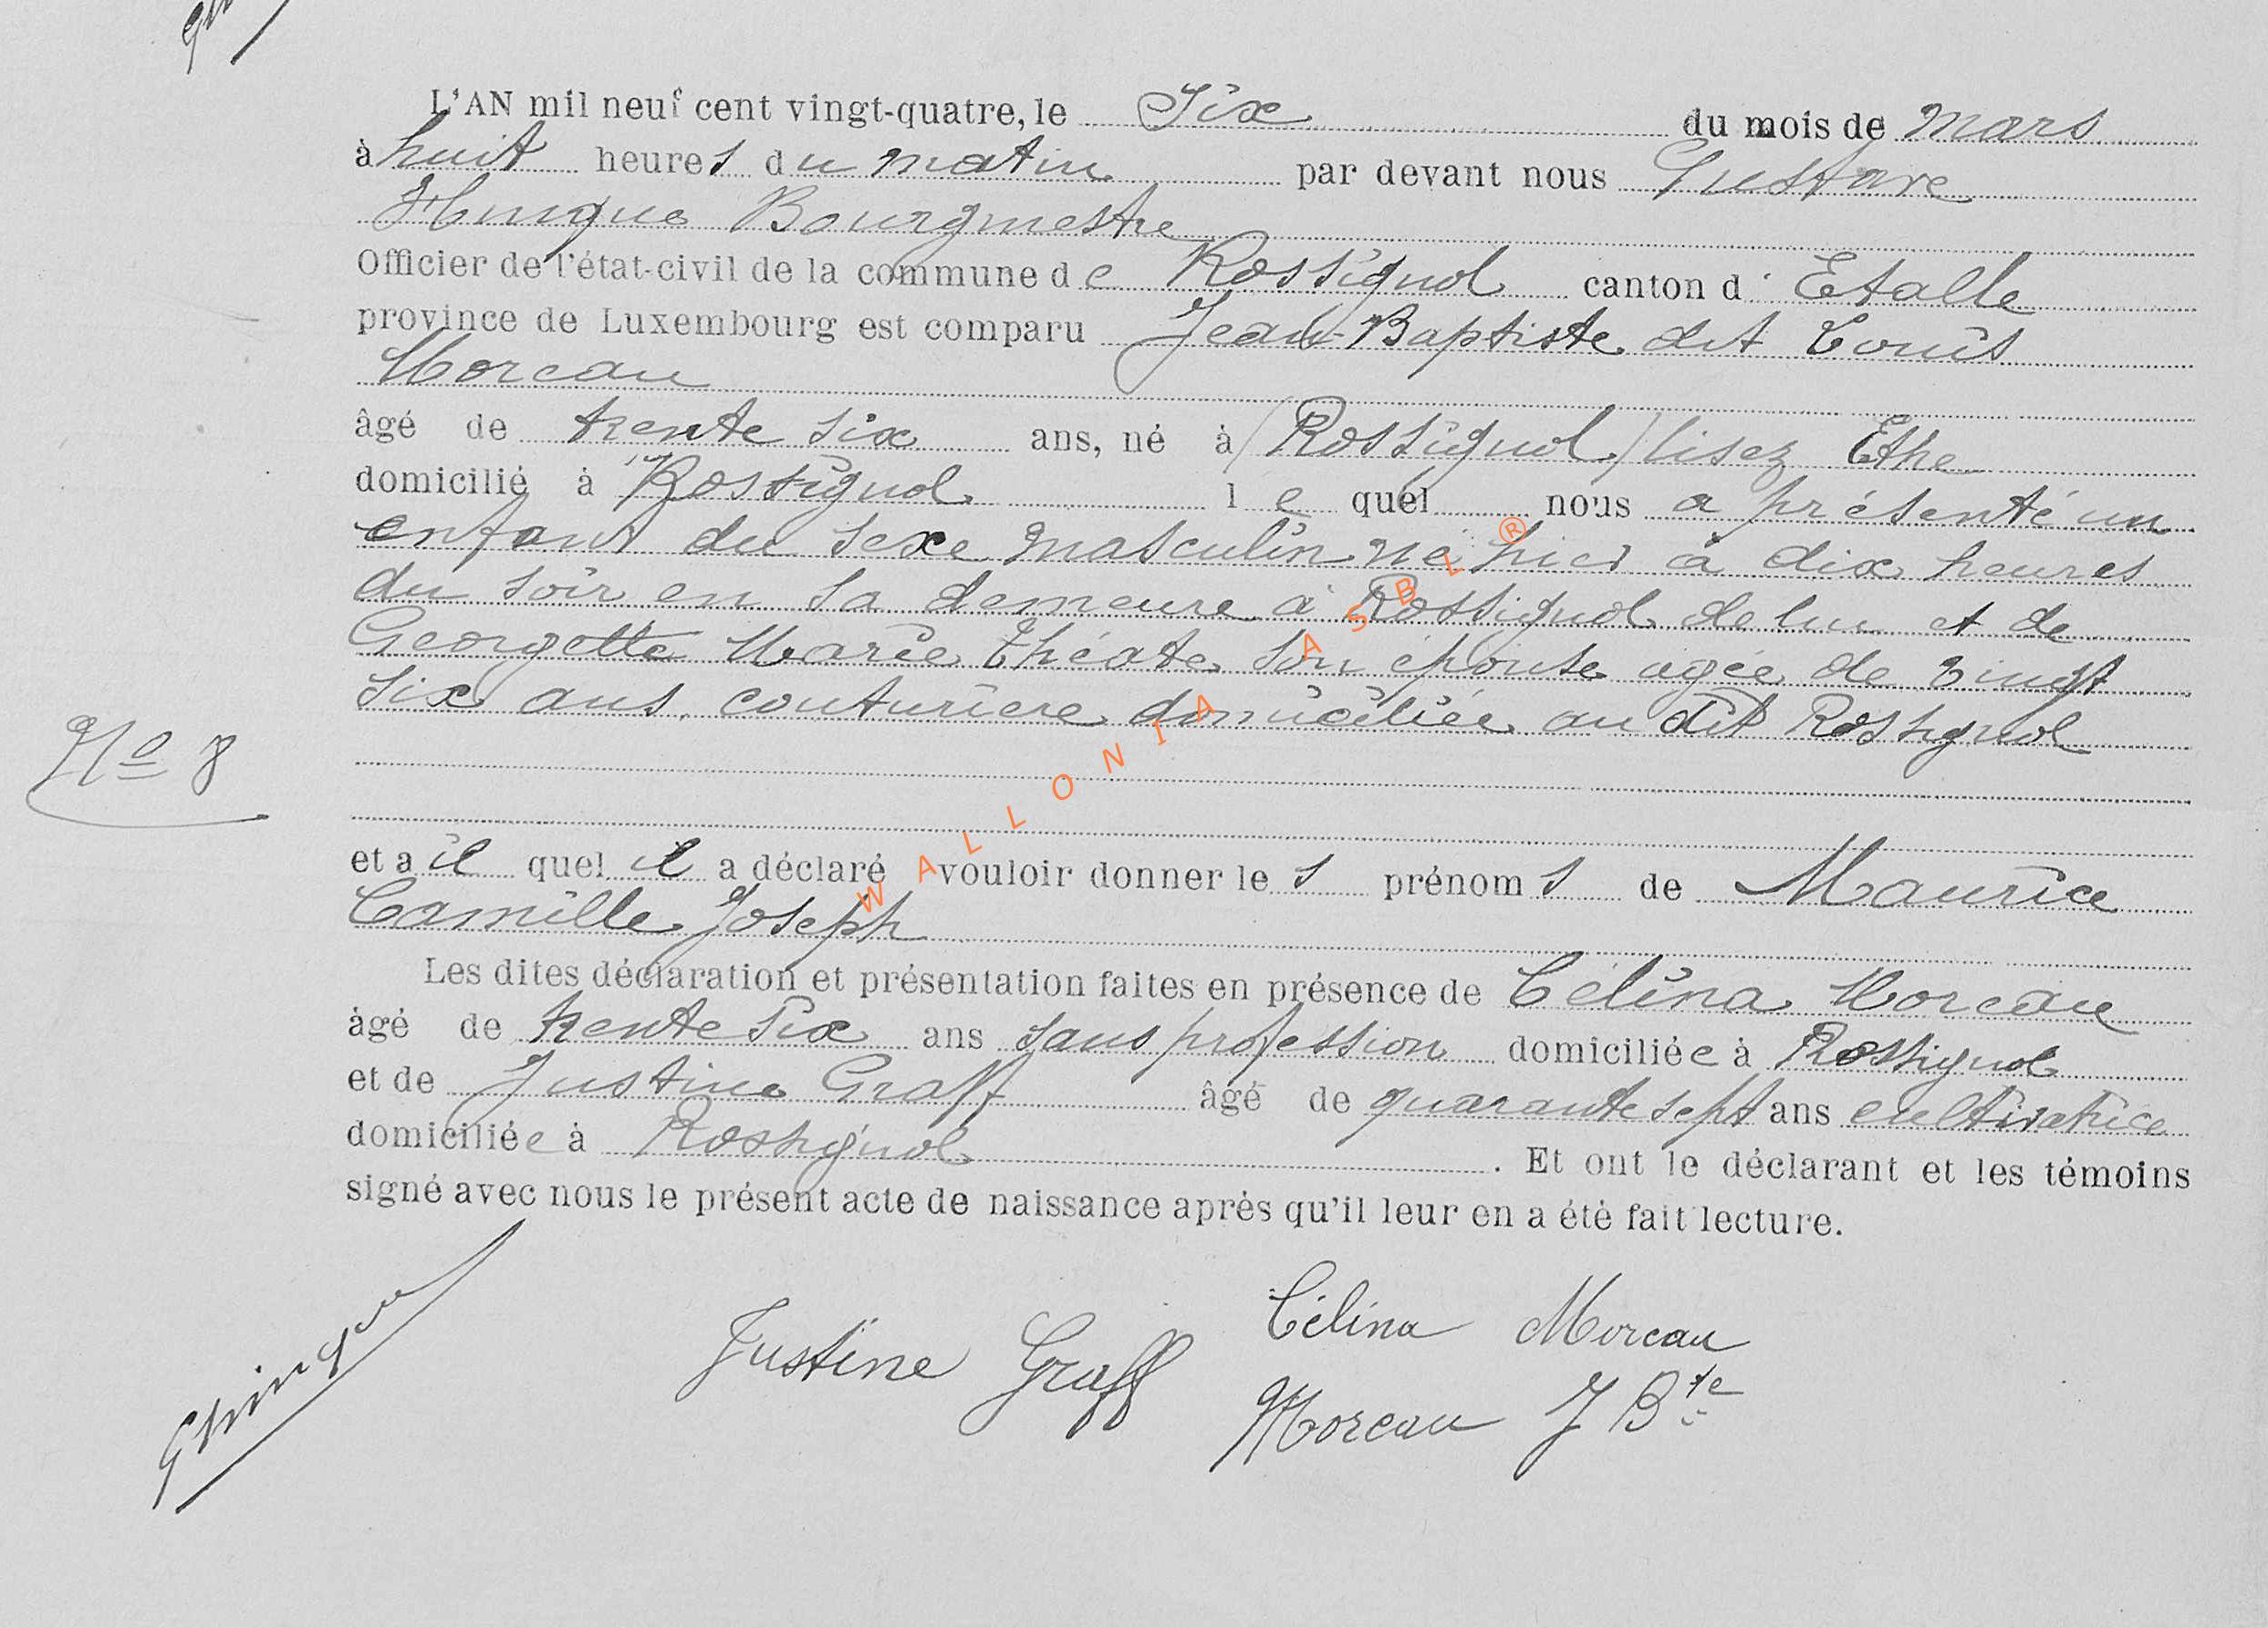 L'AN mil neuf cent vingt-quatre, le Six du mois de mars
à huit heures du matin par devant nous Gustave
Hinque Bourgmestre
Officier de l'état-civil de la commune de Rossignol canton d' Etalle
province de Luxembourg est comparu Jean-Baptiste dit Louis
Moreau
âgé de trente six ans, né à (Rossignol) lisez Ethe
domicilié à Rossignol lequel nous a présenté un
enfant du sexe masculin né hier à dix heures
du soir en sa demeure à Rossignol de lui et de
Georgette Marie Théate son épouse agée de vingt
six ans, couturière domiciliée au dit Rossignol
No 8
et a il quel il a déclaré vouloir donner les prénoms de Maurice
Camille Joseph
Les dites déclaration et présentation faites en présence de Célina Moreau
âgé de trente six ans sans profession domiciliée à Rossignol
et de Justine Graff âgé de quarante sept ans cultivatrice
domiciliée à Rossignol . Et ont le déclarant et les témoins
signé avec nous le présent acte de naissance après qu'il leur en a été fait lecture.
Célina Moreau
Justine Graff
Moreau J Bte
WALLONIA ASBL ®